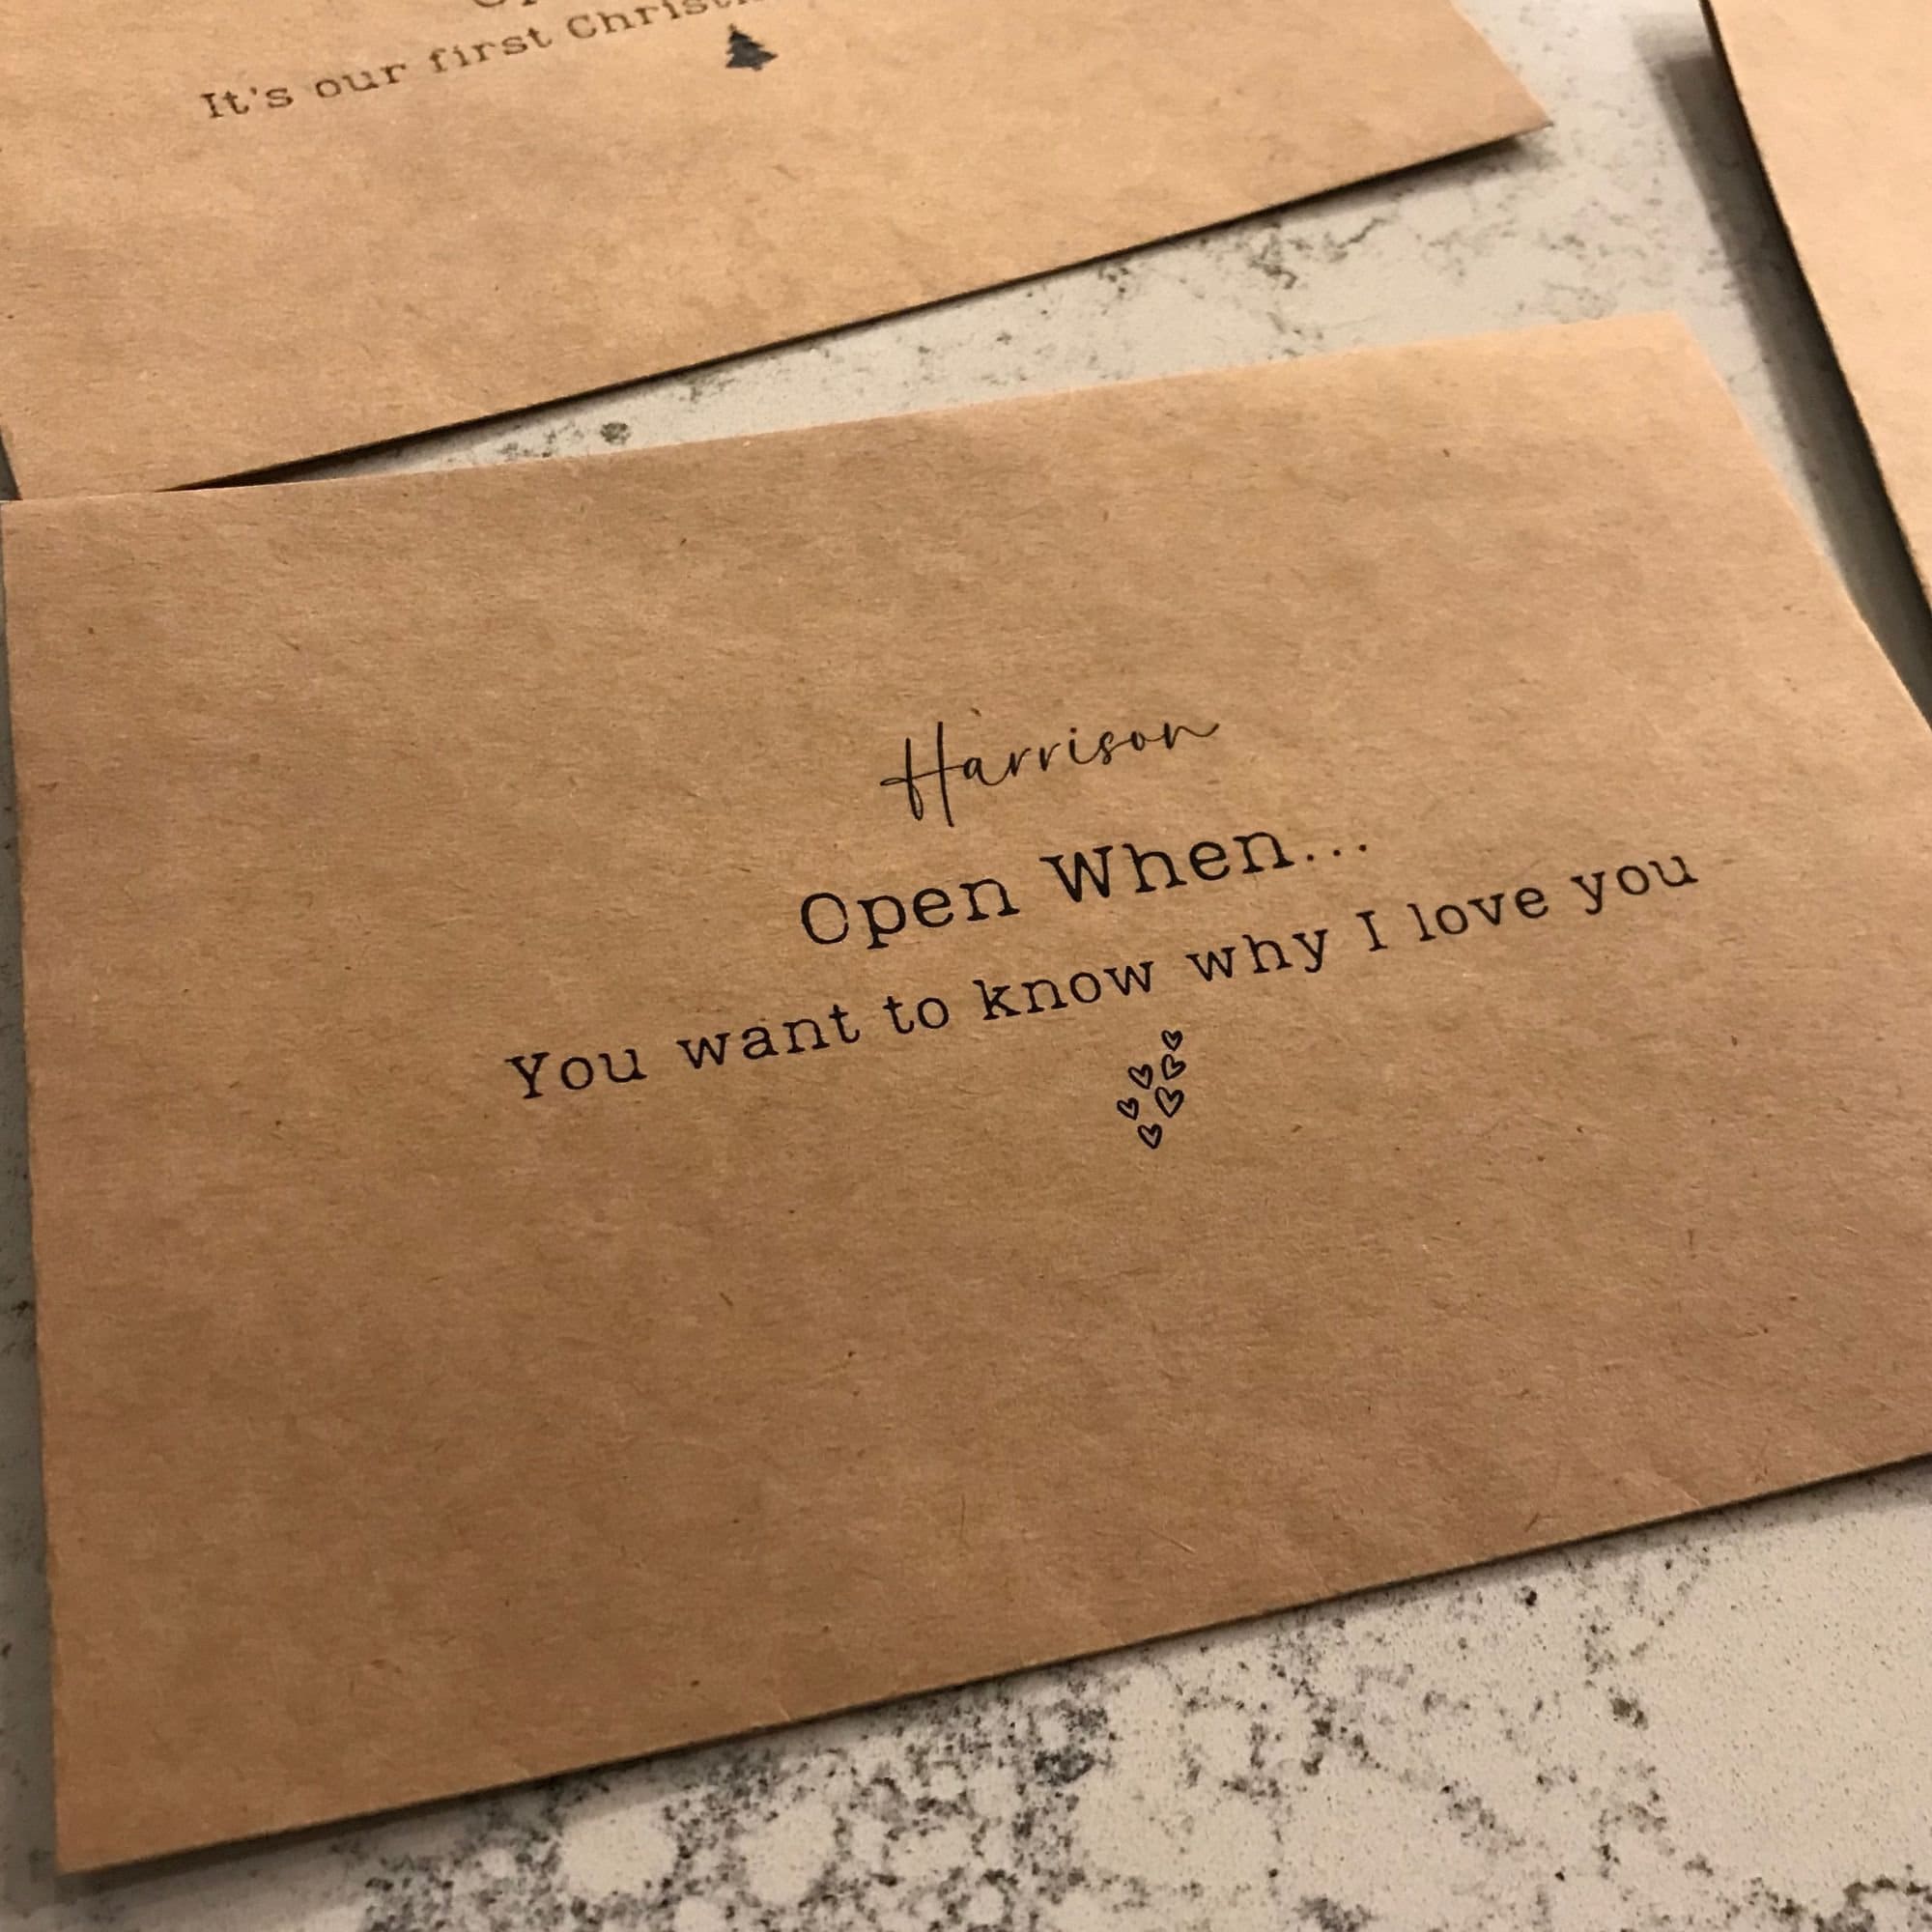 It's our first
Harrison
Open When...
You want to know why I love you